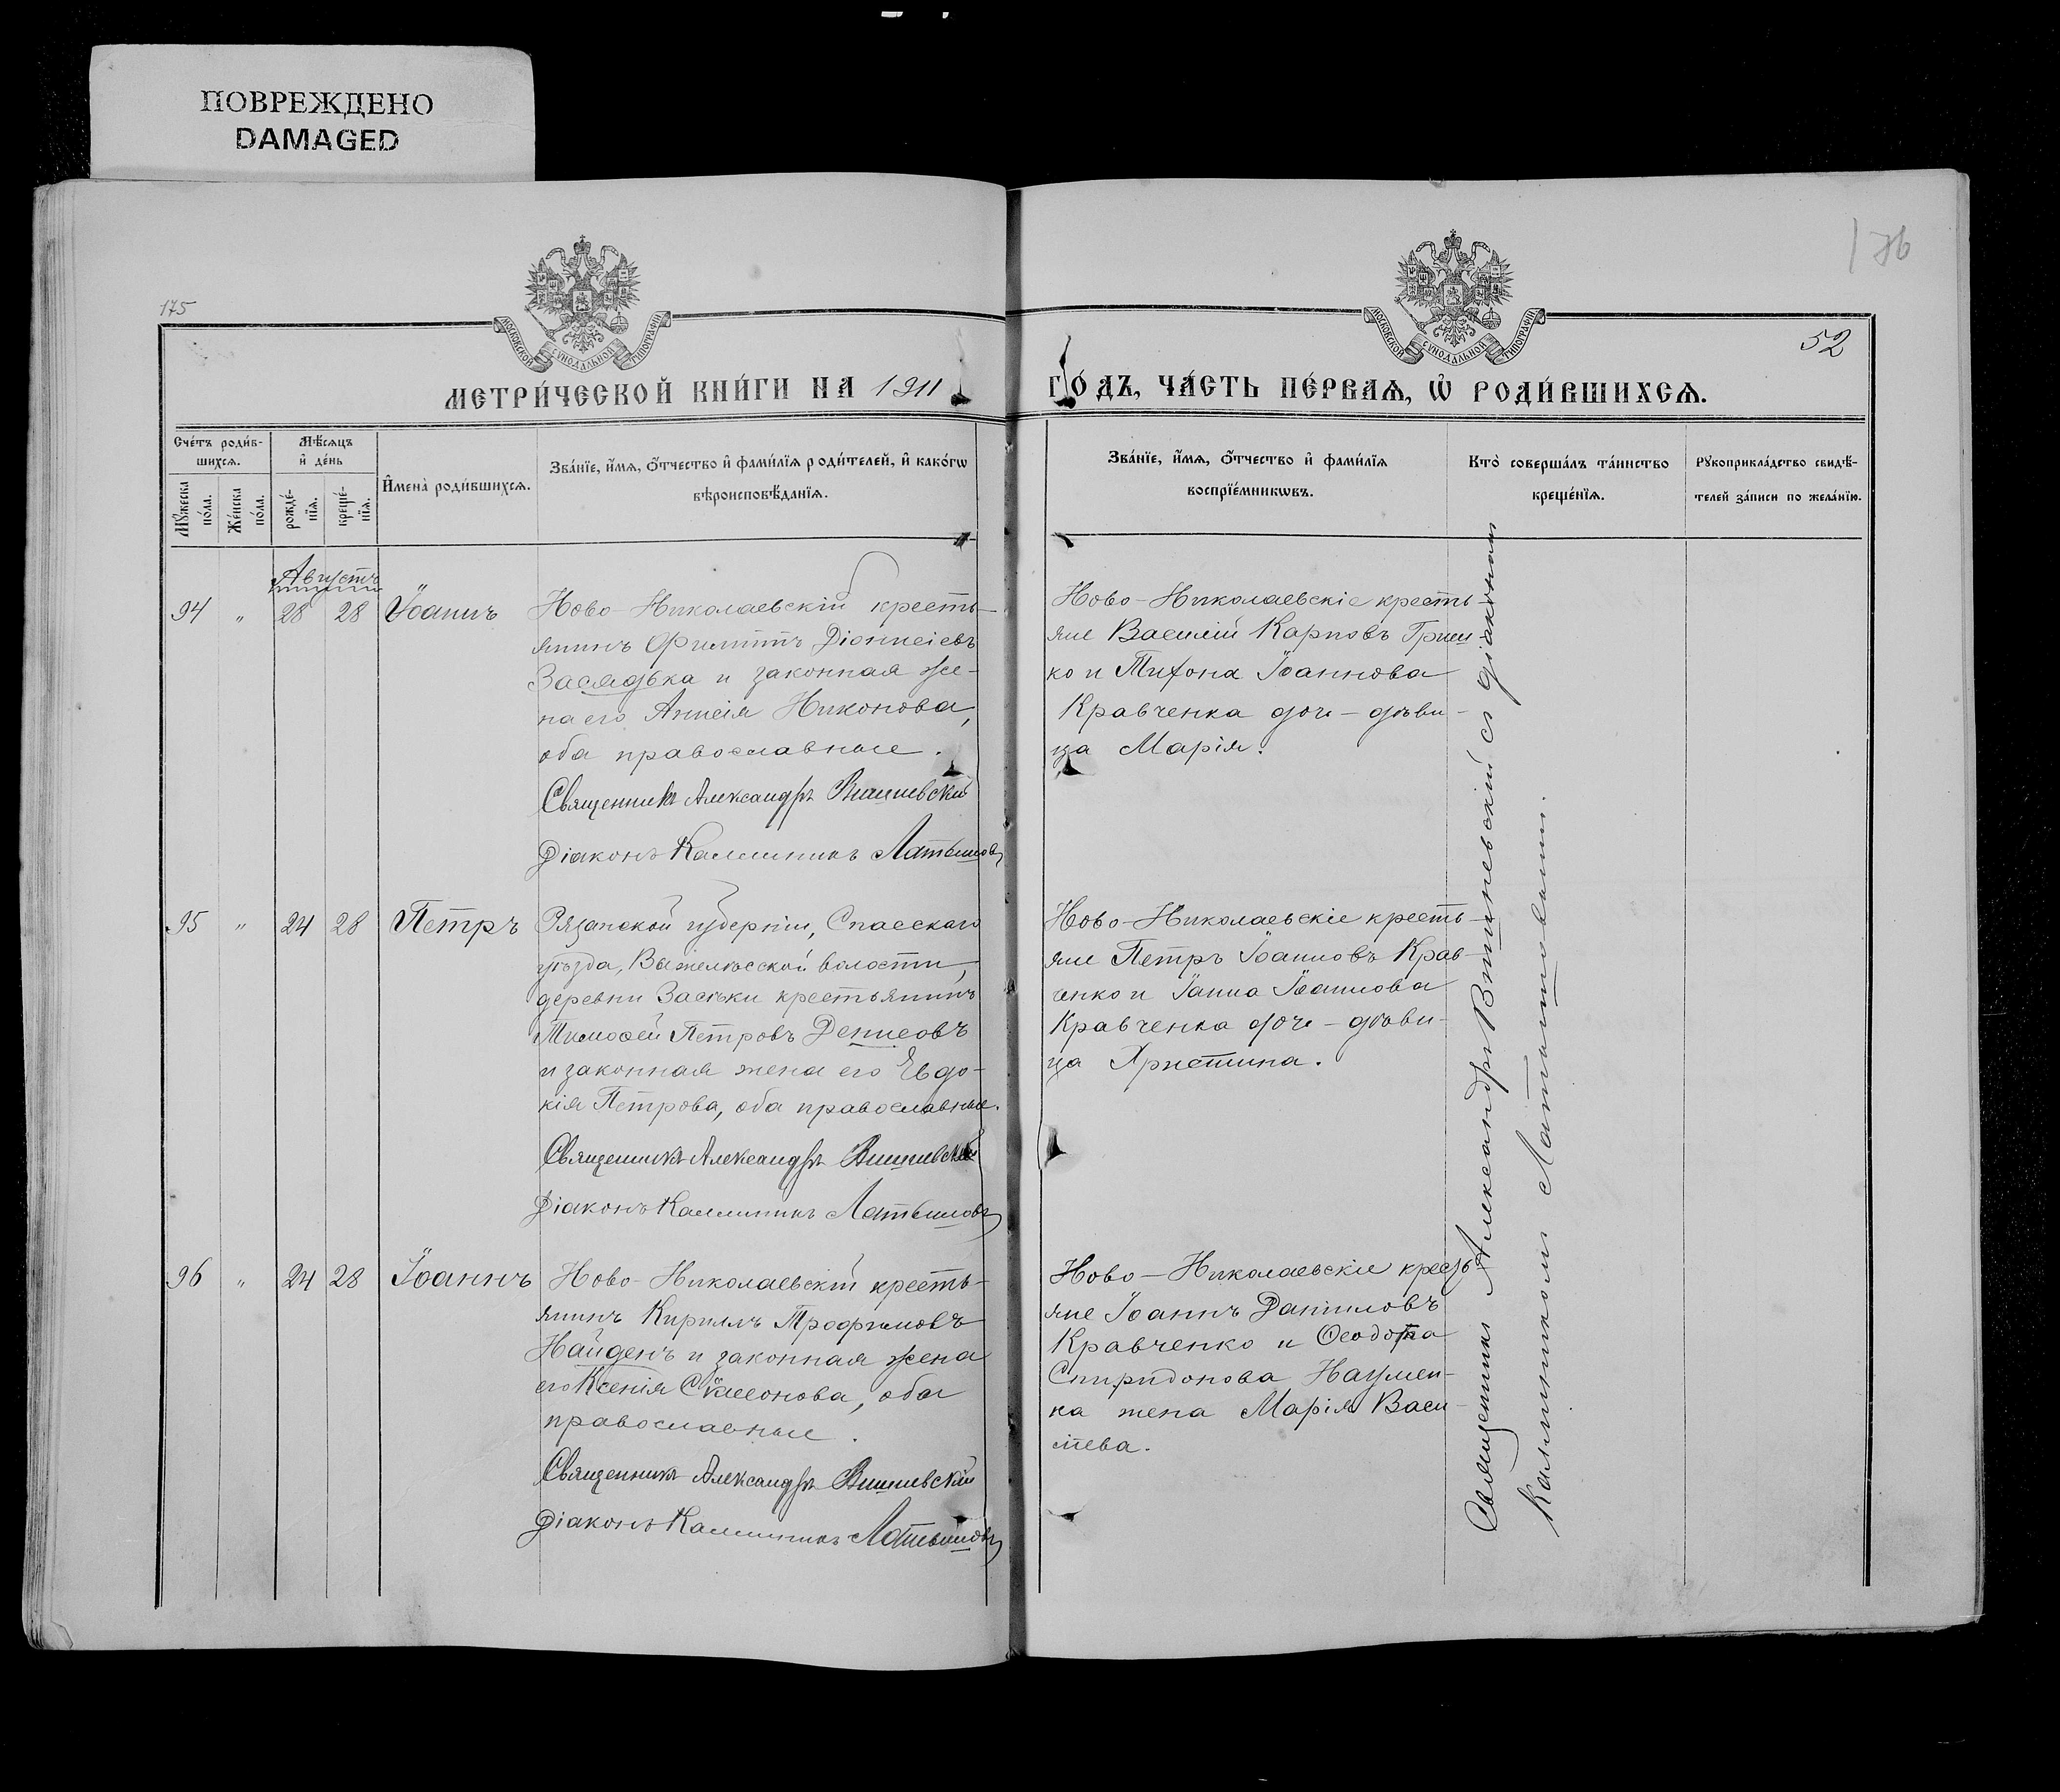 ПОВРЕЖДЕНО
DAMAGED
175
176
52
МОСКОВСКОЙ СѴНОДАЛЬНОЙ ТИПОГРАФІИ
МОСКОВСКОЙ СѴНОДАЛЬНОЙ ТИПОГРАФІИ
МЕТРИ́ЧЕСКОЙ КНИ́ГИ НА 1911
ГО́ДЪ, ЧА́СТЬ ПЕ́РВАѦ, Ѽ РОДИ́ВШИХСѦ.
Сче́тъ роди́в-
шихсѧ.
Мꙋ́жеска
по́ла.
Же́нска
по́ла.
Мѣ́сѧцъ
и҆ де́нь
рожде́-
нїѧ.
креще́-
нїѧ.
И҆мена̀ роди́вшихсѧ.
Зва́нїе, и҆́мѧ, ѻ҆́тчество и҆ фами́лїѧ роди́телей, и҆ како́гѡ
вѣроисповѣ́данїѧ.
Зва́нїе, и҆́мѧ, ѻ҆́тчество и҆ фами́лїѧ
воспрїе́мникѡвъ.
Кто̀ соверша́лъ та́инство
креще́нїѧ.
Рꙋкоприкла́дство свидѣ́-
телей за́писи по жела́нїю.
Августъ
94 " 28 28 Іоаннъ
Ново-Николаевскій кресть-
янинъ Филиппъ Діонисіевъ
Засядька и законная же-
на его Анисія Никонова,
оба православные.
Священникъ Александръ Вишневскій
Діаконъ Каллиникъ Латышовъ
Ново-Николаевскіе кресть-
яне Василій Карповъ Гриш-
ко и Тихона Іоаннова
Кравченка дочь-дѣви-
ца Марія.
95 " 24 28 Петръ
Рязанской губерніи, Спасскаго
уѣзда, Выжелѣсской волости,
деревни Засѣки крестьянинъ
Тимоѳей Петровъ Денисовъ
и законная жена его Евдо-
кія Петрова, оба православные.
Священникъ Александръ Вишневскій
Діаконъ Каллиникъ Латышовъ
Ново-Николаевскіе кресть-
яне Петръ Іоанновъ Крав-
ченко и Іоаннова
Кравченка дочь-дѣви-
ца Христина.
96 " 24 28 Іоаннъ
Ново-Николаевскій кресть-
янинъ Кириллъ Трофимовъ
Найденъ и законная жена
его Ксенія Сѵмеонова, оба
православные.
Священникъ Александръ Вишневскій
Діаконъ Каллиникъ Латышовъ
Ново-Николаевскіе кресть-
яне Іоаннъ Даніиловъ
Кравченко и Ѳеодота
Спиридонова Наумен-
ка жена Марія Васи-
ліева.
Священникъ Александръ Вишневскій съ діакономъ
Каллиникомъ Латышовымъ.